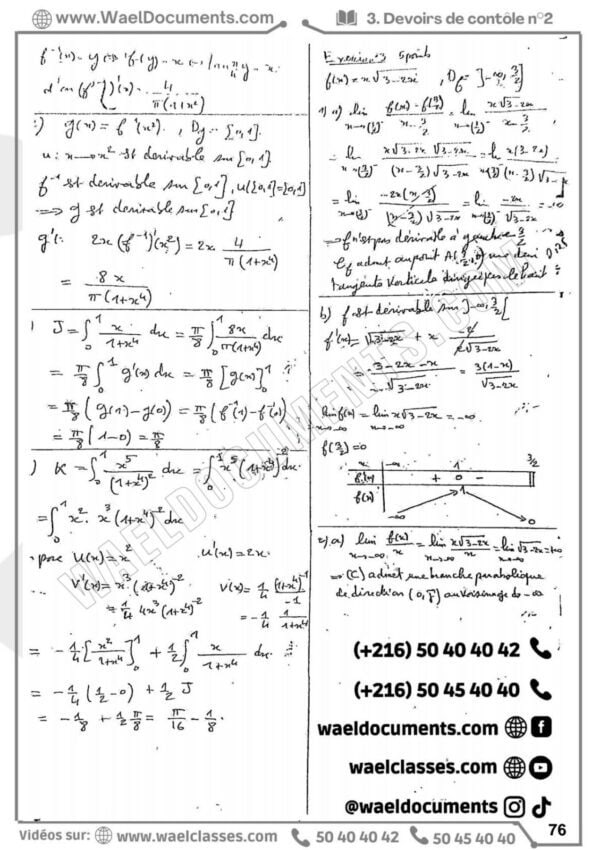 www.WaelDocuments.com
3. Devoirs de contôle n°2
f⁻¹(x) = y ⟺ f(y) = x
(f⁻¹)'(x) = 4/(π(1+x²))
g(x) = f⁻¹(x²), Dg = [0,1].
u: x→x² est dérivable sur [0,1]
f⁻¹ est dérivable sur [0,1], u([0,1])=[0,1]
⟹ g est dérivable sur [0,1]
2x(f⁻¹)'(x²) = 2x 4/(π(1+x⁴))
= 8x/(π(1+x⁴))
J = ∫₀¹ x/(1+x⁴) dx = π/8 ∫₀¹ 8x/(π(1+x⁴)) dx
= π/8 ∫₀¹ g'(x) dx = π/8 [g(x)]₀¹
= π/8 (g(1) - g(0)) = π/8 (f⁻¹(1) - f⁻¹(0))
= π/8 (1-0) = π/8
) K = ∫₀¹ x⁵/(1+x⁴)² dx = ∫₀¹ x⁵(1+x⁴)⁻² dx
= ∫₀¹ x². x³(1+x⁴)⁻² dx
pose U(x) = x² u'(x) = 2x.
V'(x) = x³(1+x⁴)⁻² V(x) = 1/4 (1+x⁴)⁻¹/-1
= 1/4 4x³(1+x⁴)⁻² = -1/4 1/(1+x⁴)
= -1/4 [x²/(1+x⁴)]₀¹ + 1/2 ∫₀¹ x/(1+x⁴) dx
= -1/4 (1/2 - 0) + 1/2 J
= -1/8 + 1/2 π/8 = π/16 - 1/8.
Exercice n°3 5 points
f(x) = x√(3-2x) , Df = ]-∞, 3/2]
= lim -2x(x-3/2)/((x-3/2)√(3-2x)) = lim -2x/√(3-2x) = -∞
⟹ f n'est pas dérivable à gauche en 3/2
Cf admet au point A(3/2, 0) une demi
tangente verticale dirigée vers le haut
b) f est dérivable sur ]-∞, 3/2[
f'(x) = √(3-2x) + x · -2/(2√(3-2x))
= (3-2x-x)/√(3-2x) = 3(1-x)/√(3-2x)
lim f(x) = lim x√(3-2x) = -∞
x→-∞ x→-∞
f(3/2) = 0
x -∞ 1 3/2
f'(x) + 0 -
f(x) 1 0
2) a) lim f(x)/x = lim x√(3-2x)/x = lim √(3-2x) = +∞
⟹ (C) admet une branche parabolique
de direction (O, j) au voisinage de -∞
WAELDOCUMENTS.COM
(+216) 50 40 40 42
(+216) 50 45 40 40
waeldocuments.com
waelclasses.com
@waeldocuments
76
Vidéos sur: www.waelclasses.com 50 40 40 42 50 45 40 40